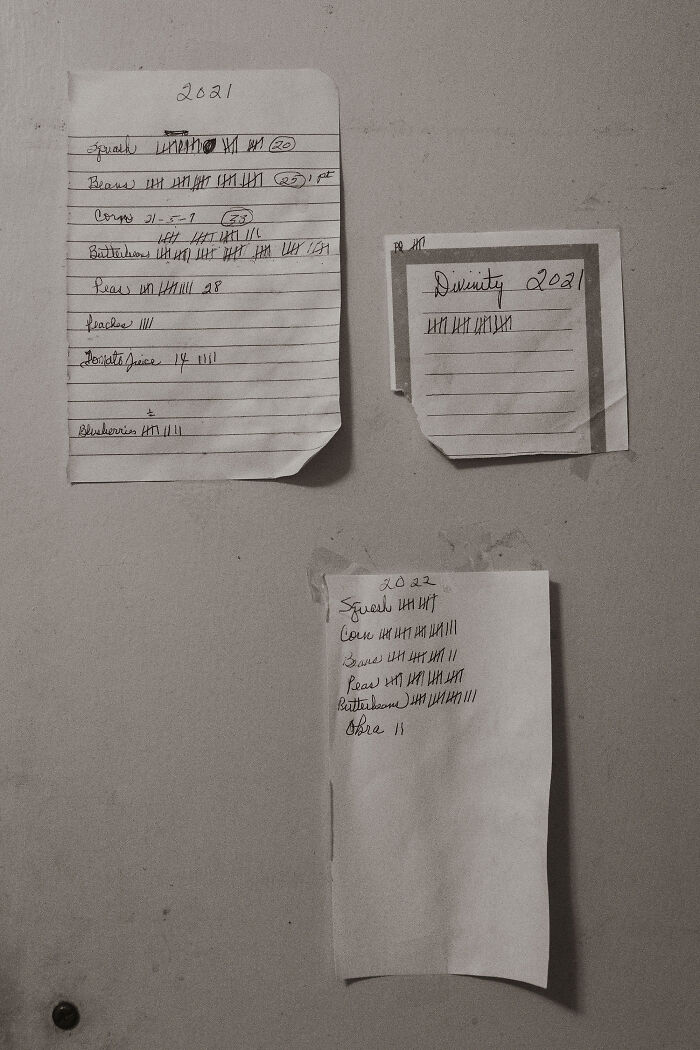 2021
Squash 20
Beans 25 1 pt
Corn 21-5-7 33
Butterbeans
Peas 28
Peaches ||||
Tomato Juice 14 ||||
Blueberries 卌 ||||
Divinity 2021
卌 卌 卌 卌
2022
Squash 卌 卌
Corn 卌 卌 卌 卌 |||
Beans 卌 卌 卌 ||
Peas 卌 卌 卌 卌
Butterbeans 卌 卌 卌 |||
Okra ||